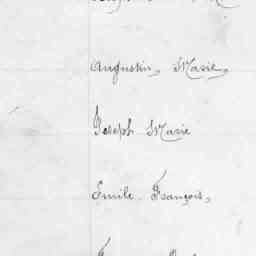 Augustin, Marie,
Joseph Marie
Emile François,